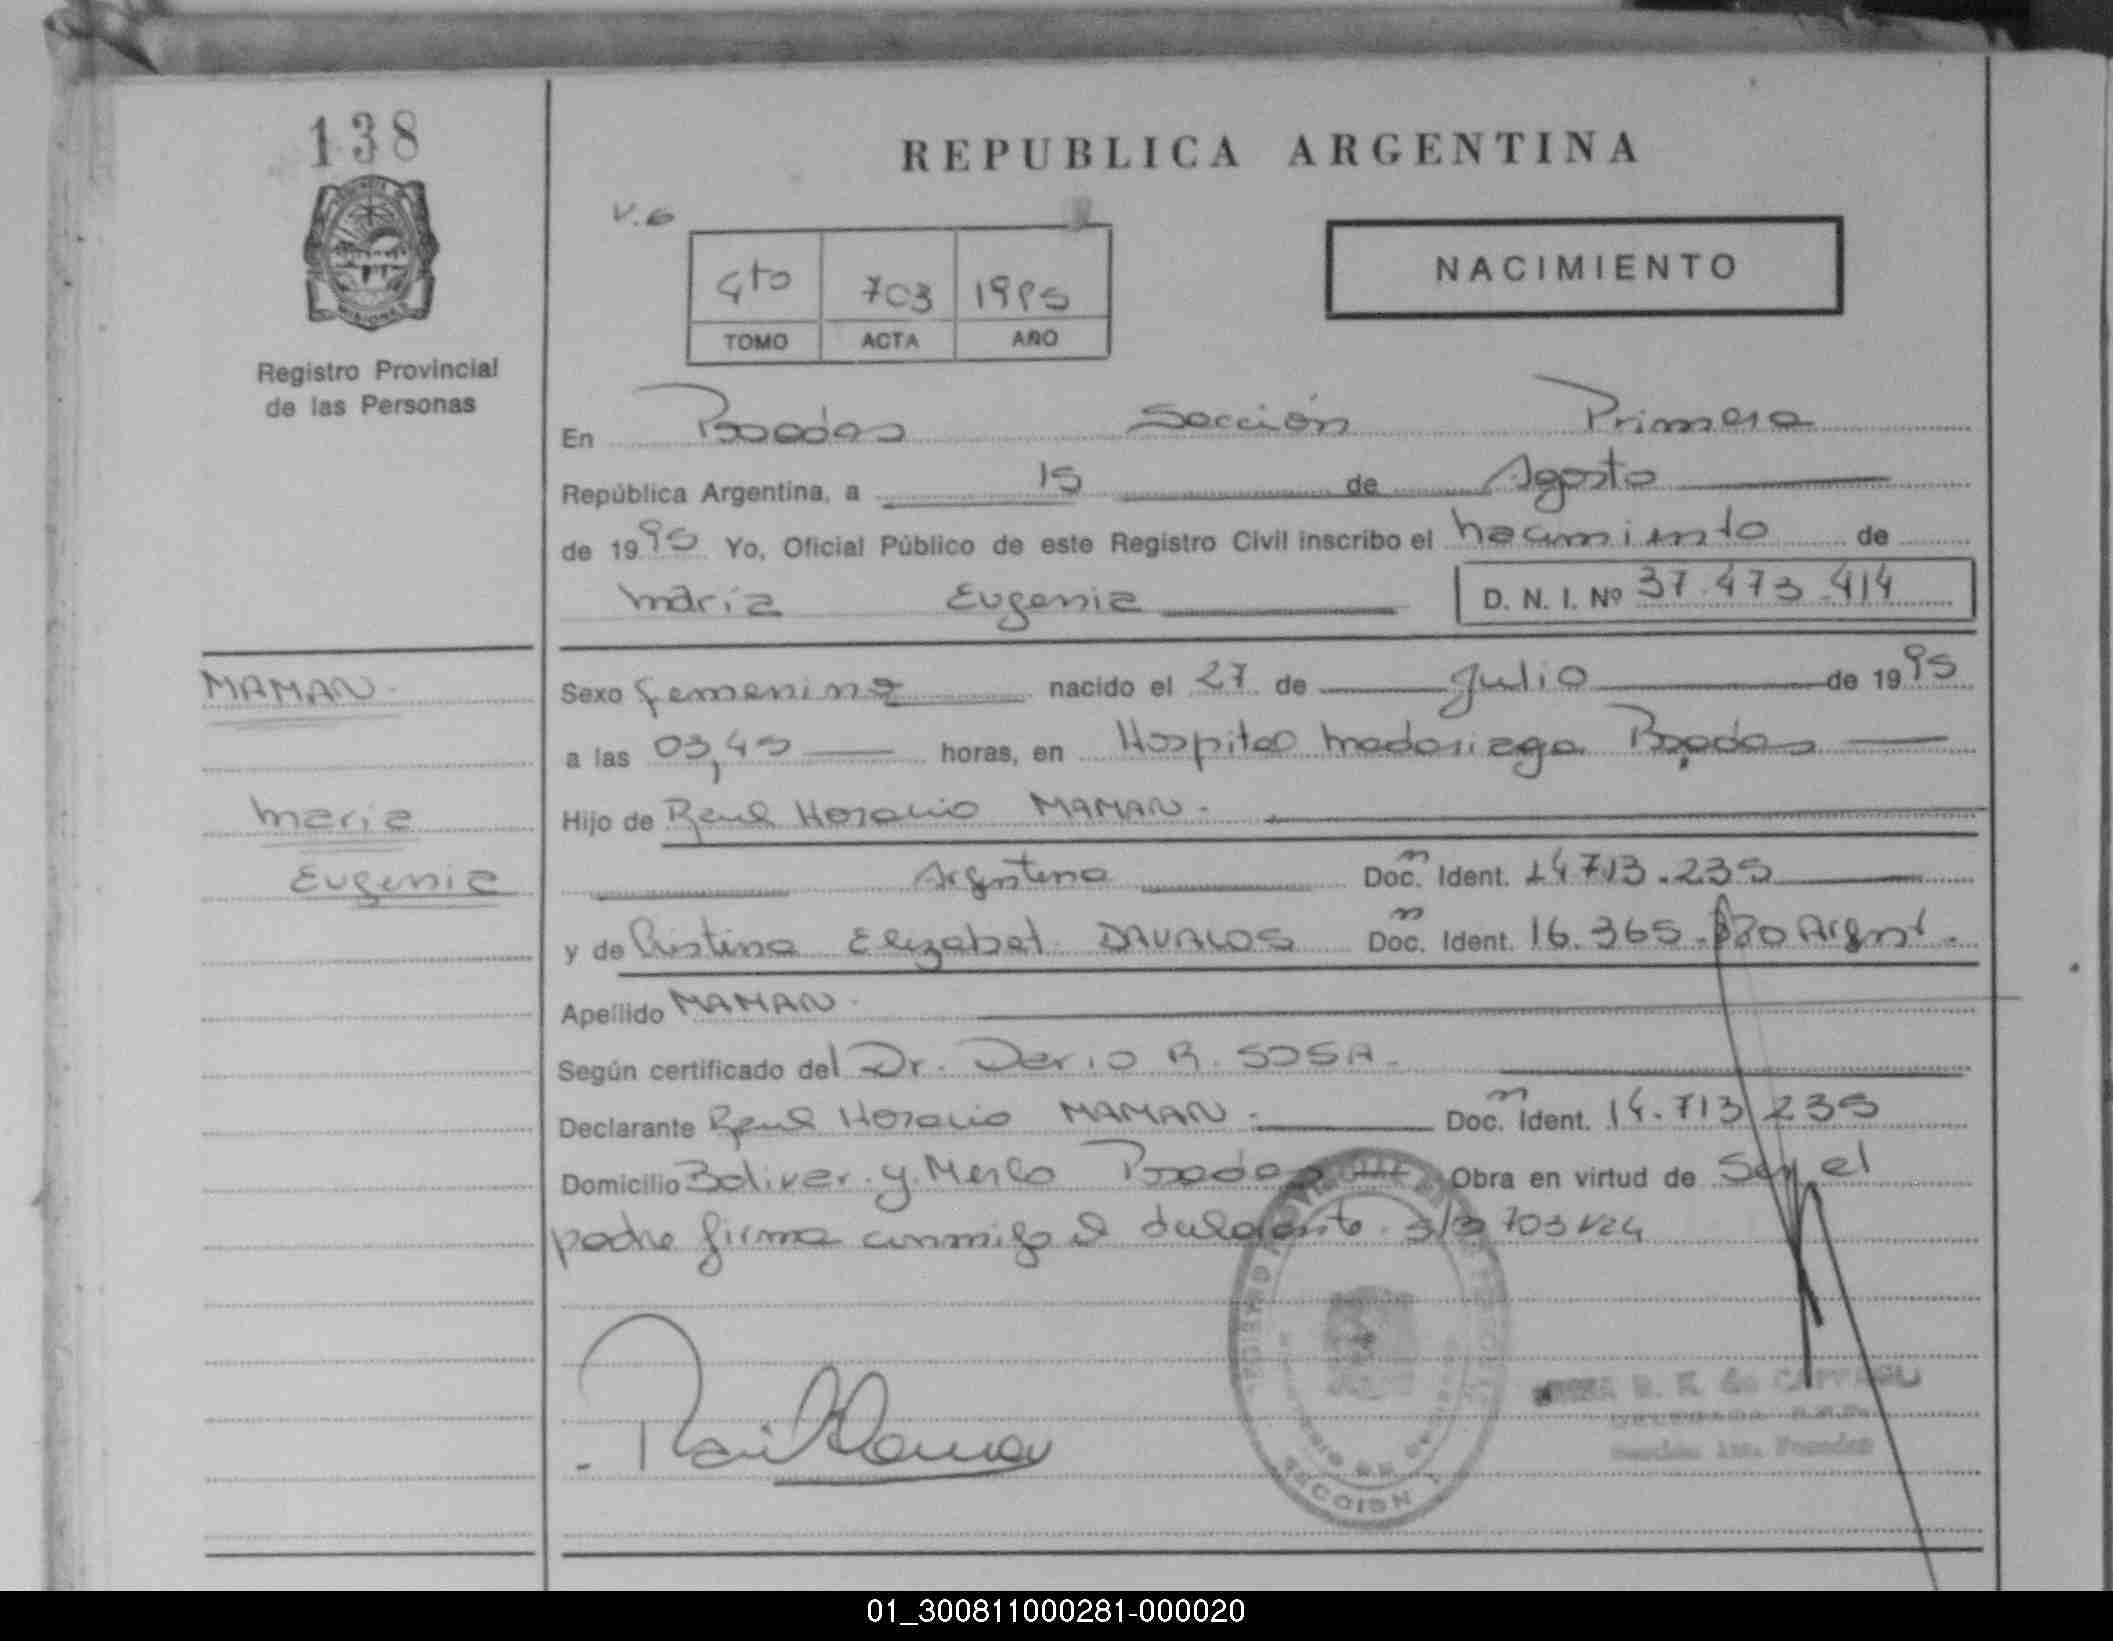 138
REPUBLICA ARGENTINA
V. 6
NACIMIENTO
4to 703 1995
TOMO ACTA AÑO
Registro Provincial
de las Personas
En Posadas Sección Primera
República Argentina, a 15 de Agosto
de 1995 Yo, Oficial Público de este Registro Civil inscribo el nacimiento de
María Eugenia D. N. I. Nº 37.473.414
MAMAN.
Sexo femenino nacido el 27 de Julio de 1995
a las 03,45 horas, en Hospital Madariaga Posadas
María
Hijo de Raul Horacio MAMAN.
Eugenia
Argentino Doc. Ident. 14.713.235
y de Cristina Elizabet DAVALOS Doc. Ident. 16.365. Argent.
Apellido MAMAN.
Según certificado del Dr. Dario R. SOSA.
Declarante Raul Horacio MAMAN. Doc. Ident. 14.713.235
Domicilio Bolivar y Merlo Posadas Obra en virtud de Ser el
padre firma conmigo el declarante. 703
SECCION 1
DELEGADA R.P.P.
Sección 1ra. Posadas
01_300811000281-000020